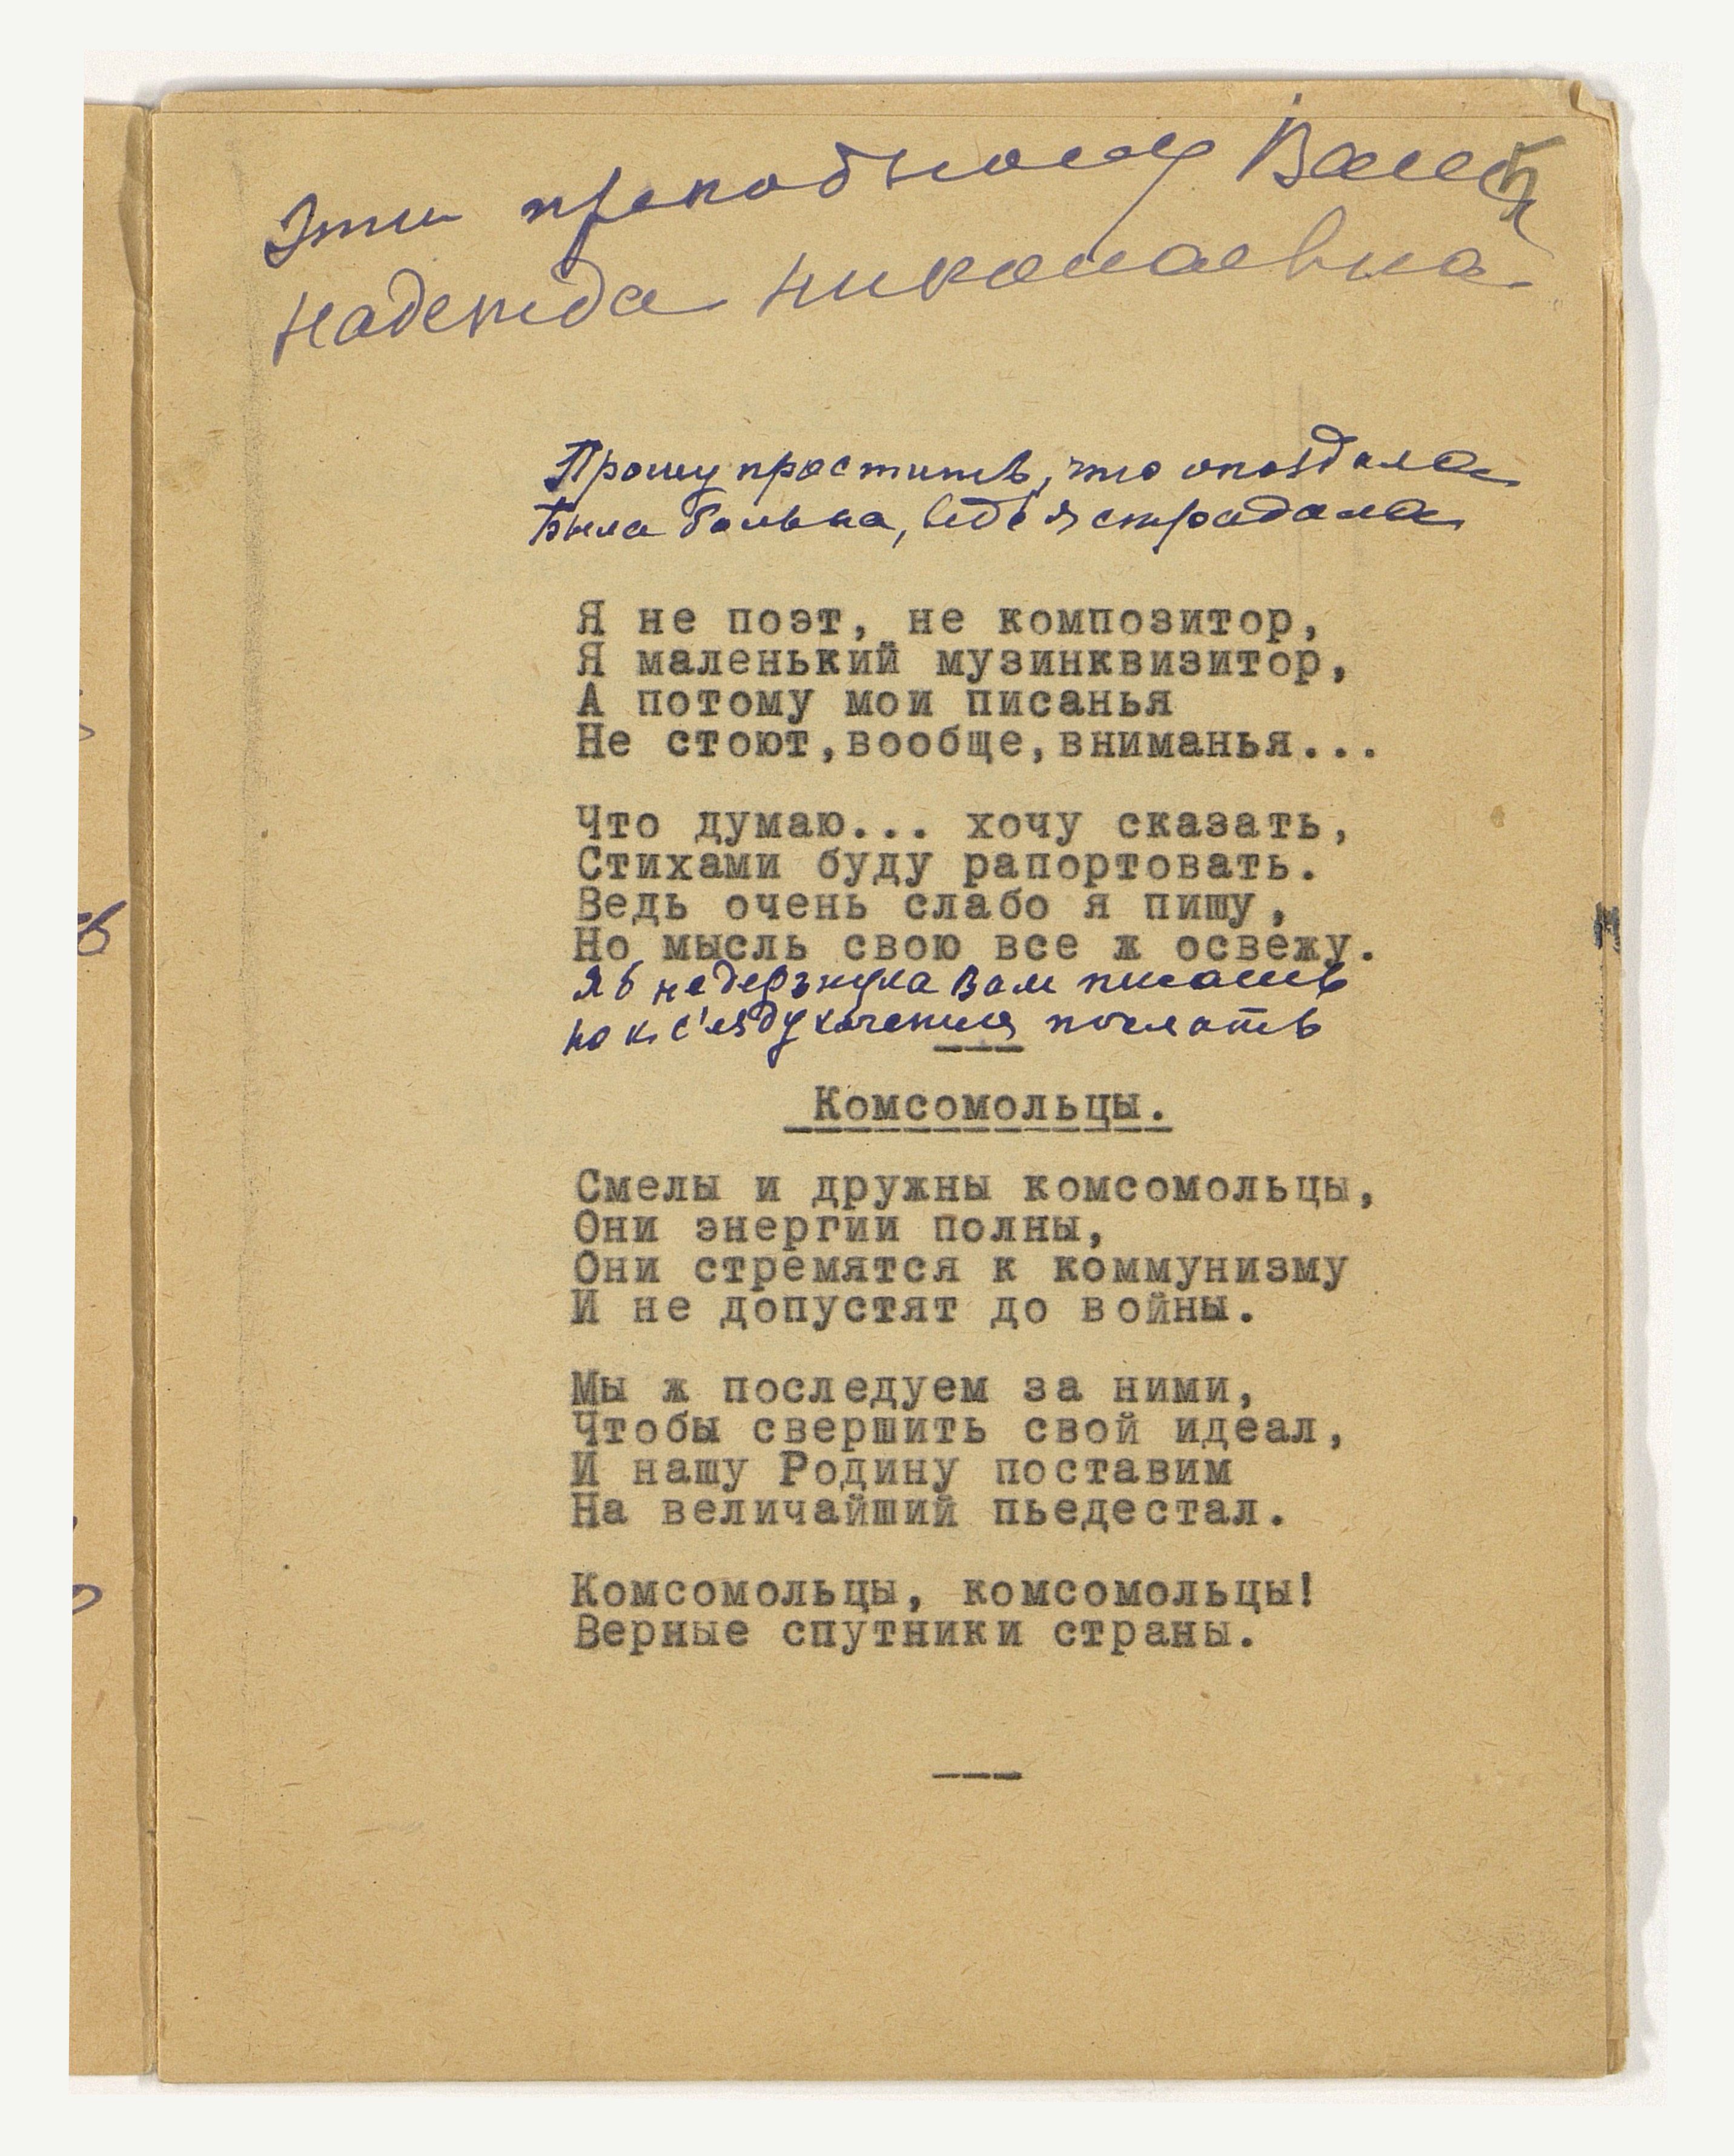 Эти преподношу Вам
5
Надежда Николаевна
Прошу простить, что опоздала
Была больна, ведь я страдала
Я не поэт, не композитор,
Я маленький музинквизитор,
А потому мои писанья
Не стоют,вообще,вниманья...
Что думаю... хочу сказать,
Стихами буду рапортовать.
Ведь очень слабо я пишу,
Но мысль свою все ж освежу.
Я б не дерзнула Вам писать
но к с'езду хочется послать
Комсомольцы.
Смелы и дружны комсомольцы,
Они энергии полны,
Они стремятся к коммунизму
И не допустят до войны.
Мы ж последуем за ними,
Чтобы свершить свой идеал,
И нашу Родину поставим
На величайший пьедестал.
Комсомольцы, комсомольцы!
Верные спутники страны.